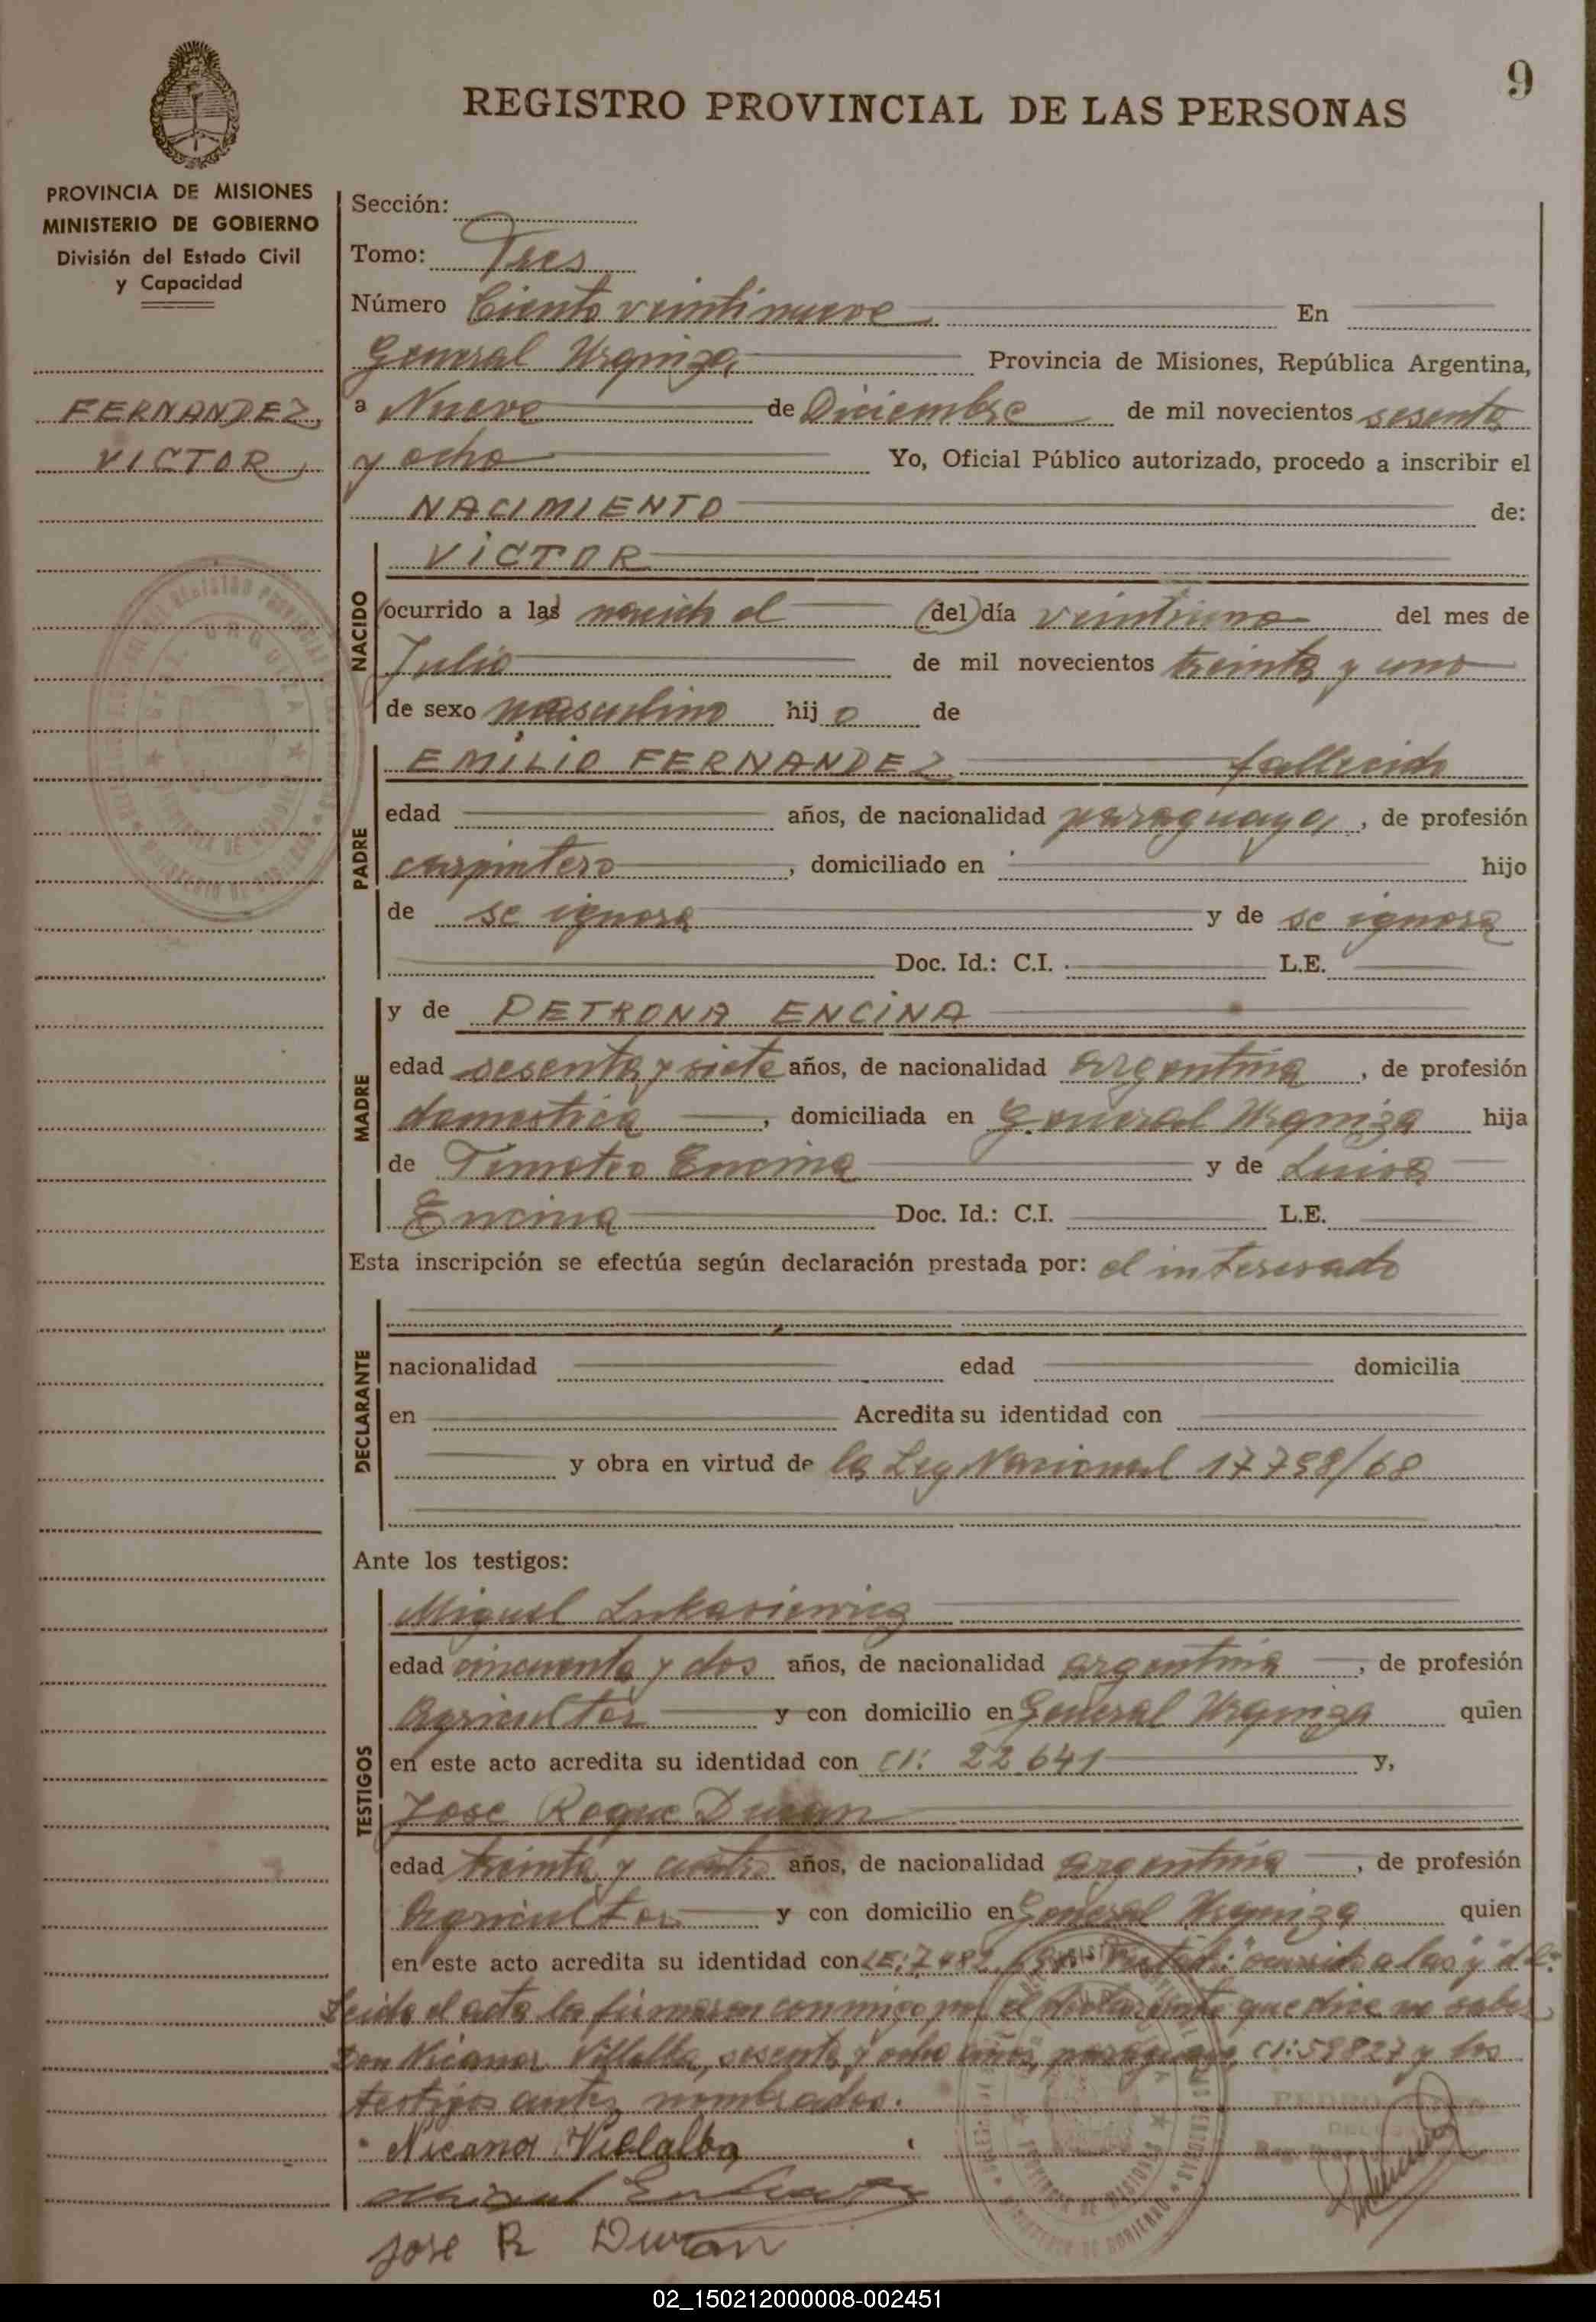 9
REGISTRO PROVINCIAL DE LAS PERSONAS
PROVINCIA DE MISIONES
MINISTERIO DE GOBIERNO
División del Estado Civil
y Capacidad
FERNANDEZ,
VICTOR,
Sección:
Tomo: Tres
Número Ciento veintinueve En
General Urquiza, Provincia de Misiones, República Argentina,
a Nueve de Diciembre de mil novecientos sesenta
y ocho Yo, Oficial Público autorizado, procedo a inscribir el
NACIMIENTO de:
NACIDO
VICTOR
ocurrido a las nacido el (del) día veintiuno del mes de
Julio de mil novecientos treinta y uno
de sexo masculino hij o de
PADRE
EMILIO FERNANDEZ fallecido
edad años, de nacionalidad paraguaya, de profesión
carpintero, domiciliado en hijo
de se ignora y de se ignora
Doc. Id.: C.I. L.E.
MADRE
y de PETRONA ENCINA
edad sesenta y siete años, de nacionalidad argentina, de profesión
domestica, domiciliada en General Urquiza hija
de Timoteo Encina y de Luisa
Encina Doc. Id.: C.I. L.E.
Esta inscripción se efectúa según declaración prestada por: el interesado
DECLARANTE
nacionalidad edad domicilia
en Acredita su identidad con
y obra en virtud de la Ley Nacional 17798/68
Ante los testigos:
TESTIGOS
Miguel Lukasiewicz
edad cincuenta y dos años, de nacionalidad argentina, de profesión
Agricultor y con domicilio en General Urquiza quien
en este acto acredita su identidad con CI: 22.641 y,
Jose Roque Duran
edad treinta y cuatro años, de nacionalidad argentina, de profesión
Agricultor y con domicilio en General Urquiza quien
en este acto acredita su identidad con LE: 7482 "ocurrido a las" y "del"
Leida el acta la firmaron conmigo por el declarante que dice no saber
Don Nicanor Villalba, sesenta y ocho años, paraguayo, CI: 59827 y los
testigos antes nombrados.
Nicanor Villalba
Jose R Duran
02_150212000008-002451